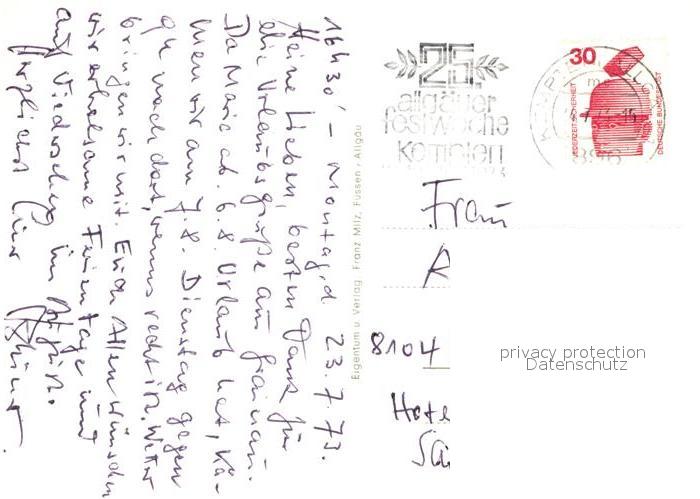 16h30' - Montag, d. 23.7.73.
Meine Lieben, besten Dank für
die Urlaubsgrüße aus Grainau.
Da Maic ab. 6.8. Urlaub hat, kä-
men wir am 7.8. Dienstag gegen
nach dort, wenns recht ist. Wetter
bringen wir mit. Euch Allen wünschen
wir erholsame Ferientage und
auf Wiedersehen im
Herzlichst Eure
Eigentum u. Verlag Franz Milz, Füssen, Allgäu
25.
allgäuer
festwoche
kempten
30
JEDERZEIT SICHERHEIT
DEUTSCHE BUNDESPOST
KEMPTEN
896
Frau
R
8104
privacy protection
Datenschutz
Hote